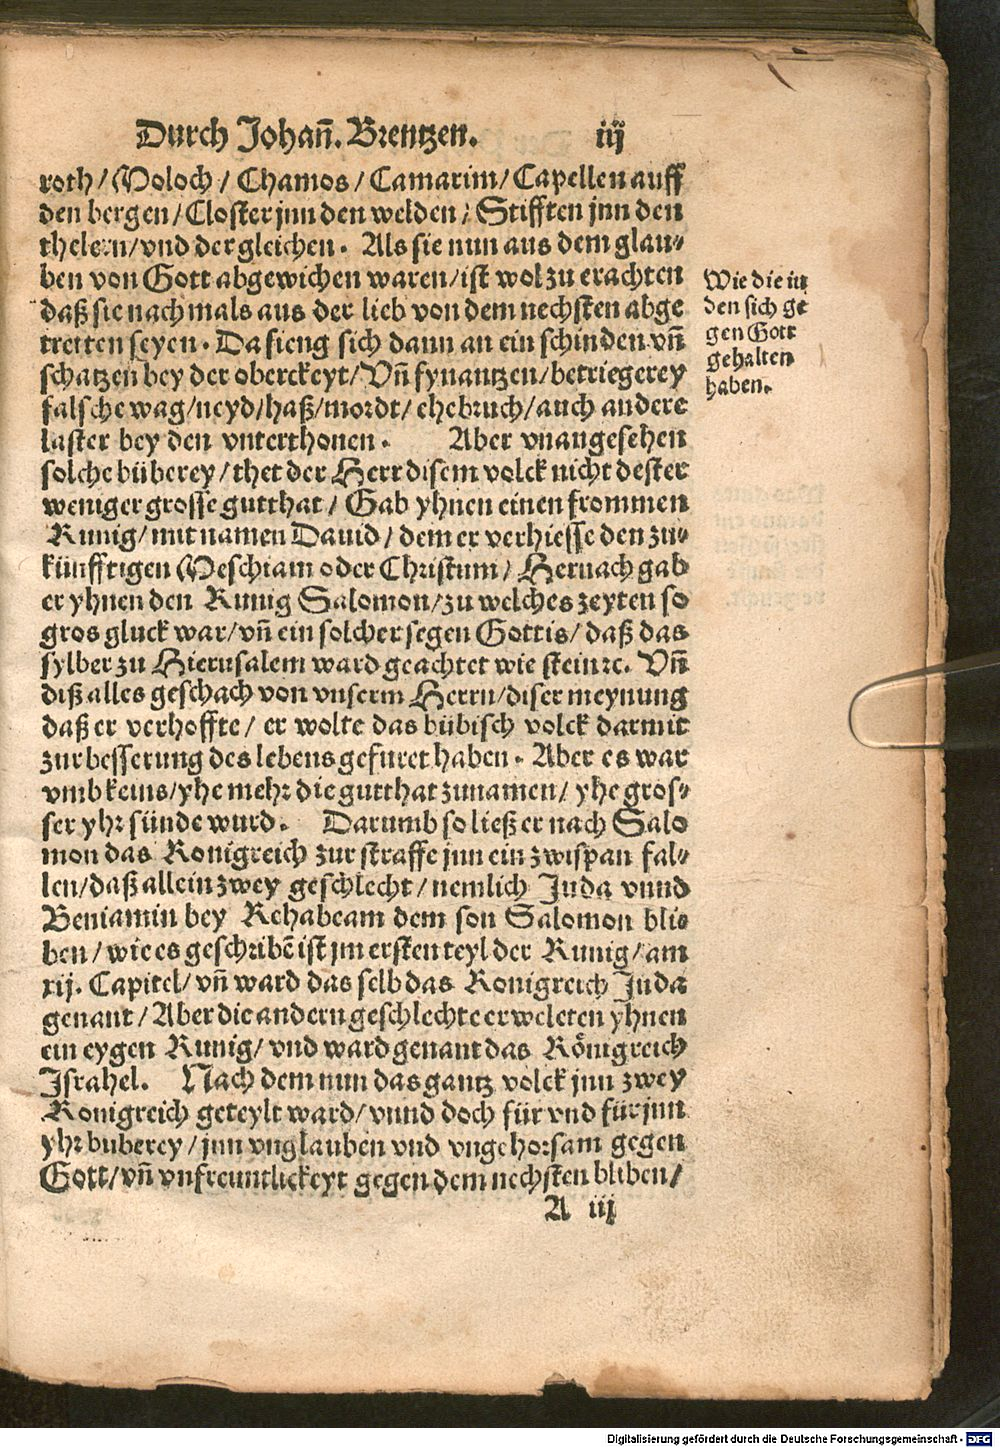 Durch Johañ. Brentzen. iij
roth/Moloch/Chamos/Camarim/Capellen auff
den bergen/Closter jnn den welden/Stifften jnn den
thelern/vnd der gleichen. Als sie nun aus dem glau⸗
ben von Gott abgewichen waren/ist wol zu erachten
daß sie nachmals aus der lieb von dem nechsten abge
tretten seyen. Da fieng sich dann an ein schinden vñ
schatzen bey der oberckeyt/Vñ fynantzen/betriegerey
falsche wag/neyd/haß/mordt/ehebruch/auch andere
laster bey den vnterthonen. Aber vnangesehen
solche büberey/thet der Herr disem volck nicht dester
weniger grosse gutthat/Gab yhnen einen frommen
Kunig/mit namen Dauid/dem er verhiesse den zu⸗
künfftigen Meschiam oder Christum/Hernach gab
er yhnen den Kunig Salomon/zu welches zeyten so
gros gluck war/vñ ein solcher segen Gottis/daß das
sylber zu Hierusalem ward geachtet wie stein ꝛc. Vñ
diß alles geschach von vnserm Herrn/diser meynung
daß er verhoffte/er wolte das bübisch volck darmit
zur besserung des lebens gefuret haben. Aber es war
vmb keins/yhe mehr die gutthat zunamen/yhe gros⸗
ser yhr sünde wurd. Darumb so ließ er nach Salo
mon das Konigreich zur straffe jnn ein zwispan fal⸗
len/daß allein zwey geschlecht/nemlich Juda vnnd
Beniamin bey Rehabeam dem son Salomon bli⸗
ben/wie es geschribẽ ist jm ersten teyl der Kunig/am
xij. Capitel/vñ ward das selb das Konigreich Juda
genant/Aber die andern geschlechte erweleten yhnen
ein eygen Kunig/vnd ward genant das Königreich
Israhel. Nach dem nun das gantz volck jnn zwey
Konigreich geteylt ward/vnnd doch für vnd für jnn
yhr buberey/jnn vnglauben vnd vngehorsam gegen
Gott/vñ vnfreuntlickeyt gegen dem nechsten bliben/
A iij
Wie die iu
den sich ge
gen Gott
gehalten
haben.
Digitalisierung gefördert durch die Deutsche Forschungsgemeinschaft - DFG